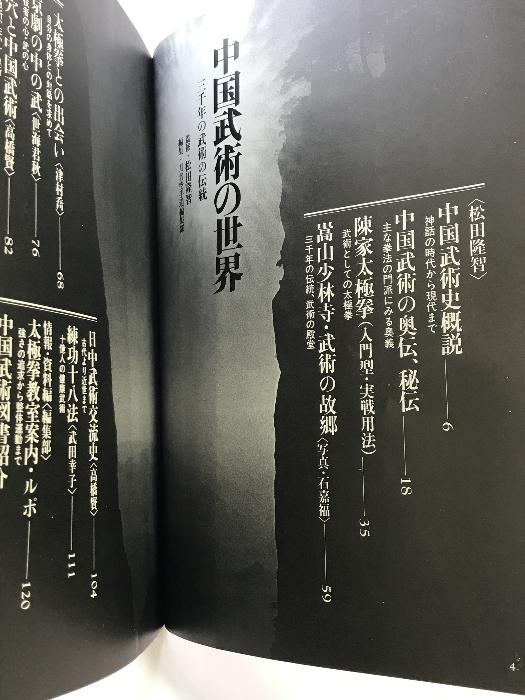 中国武術の世界
三千年の武術の伝統
監修・松田隆智
〈松田隆智〉
中国武術史概説——6
神話の時代から現代まで
中国武術の奥伝、秘伝——18
主な拳法の門派にみる奥義
陳家太極拳(入門型・実戦用法)——35
武術としての太極拳
嵩山少林寺・武術の故郷〈写真・石嘉福〉——59
三千年の伝統、武術の殿堂
太極拳との出会い〈津村喬〉——68
自分の身体との対話を求めて
京劇の中の武〈世海君秋〉——76
穴と中国武術〈高橋賢〉——82
日中武術交流史〈高橋賢〉——104
古代より近世まで
練功十八法〈武田幸子〉——111
十億人の健康武術
情報・資料編〈編集部〉
太極拳教室案内・ルポ——120
強さの追求から整体運動まで
中国武術図書紹介
4